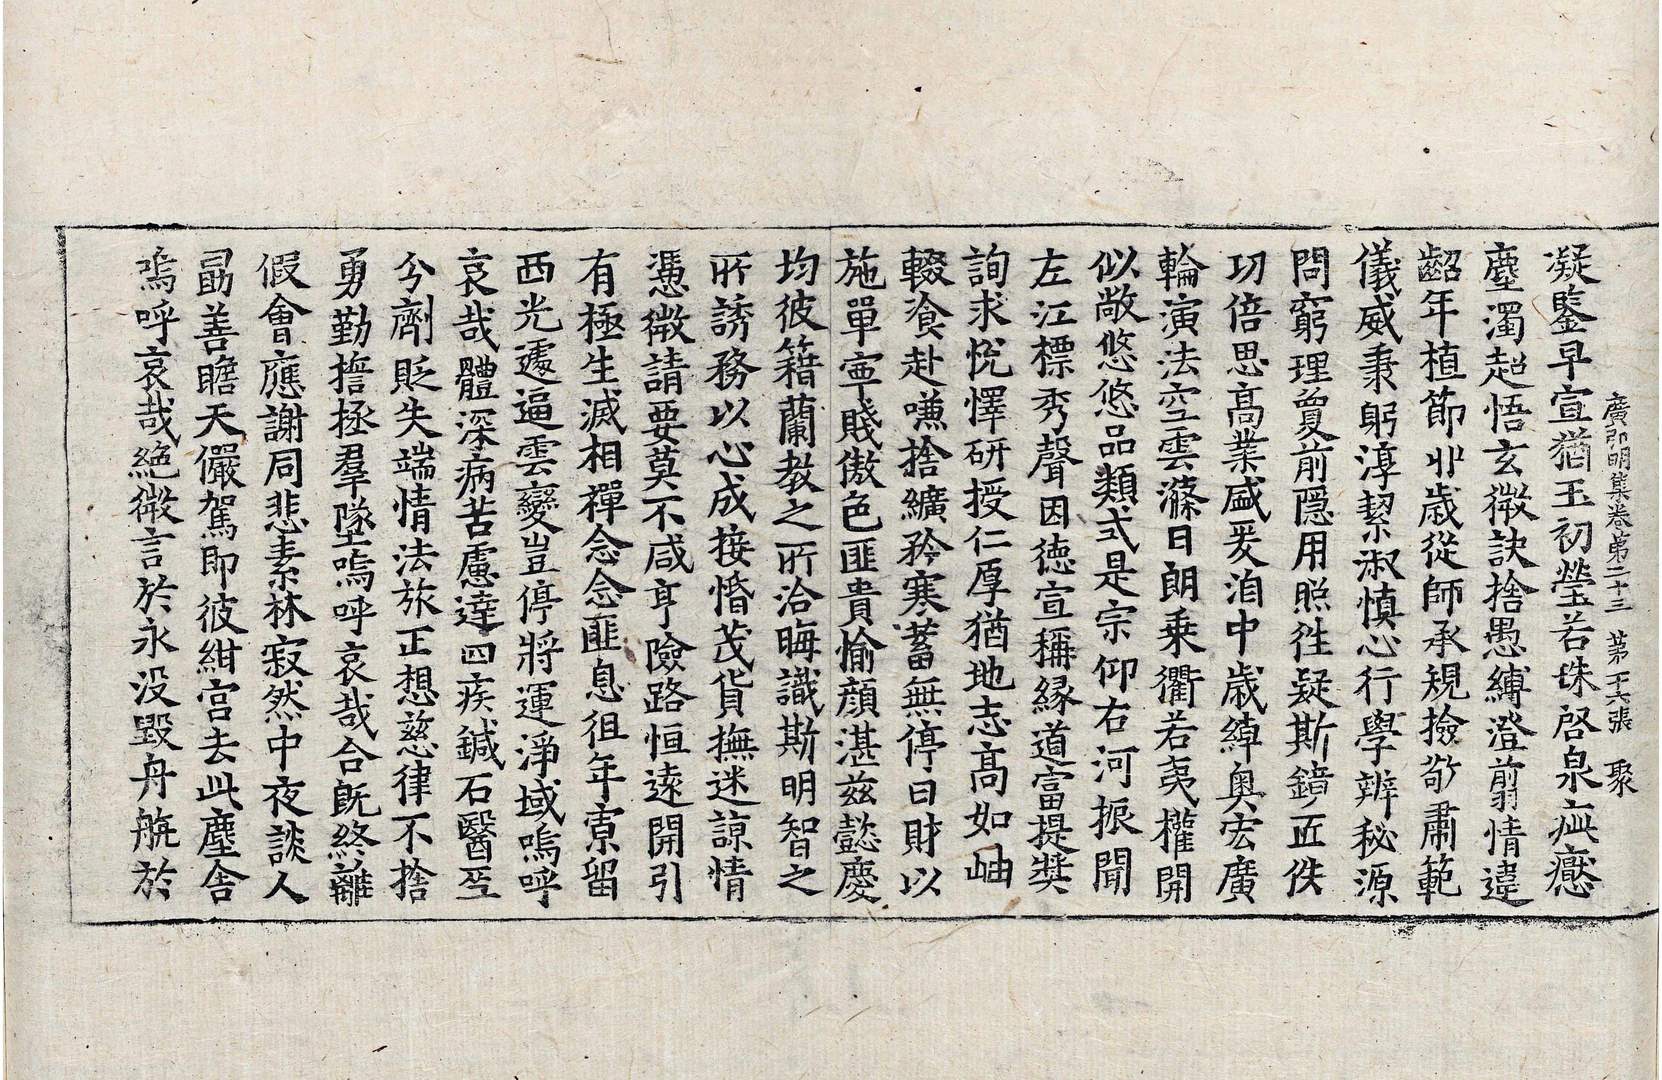 廣弘明集卷第二十三 第十六張 聚
凝鑒早宣猶玉初瑩若珠啓泉疵癋
塵濁超悟玄微訣捨愚縛澄翦情違
齠年植節丱歲從師承規撿敬肅範
儀威秉躬淳絜淑慎心行學辨秘源
問窮理賈前隱用照徃疑斯鏡匹佚
功倍思高業盛爰洎中歲綽奧宏廣
輪演法空雲滌日朗乗衢若夷權開
似敞悠悠品類式是宗仰右河振聞
左江標秀聲因德宣稱緣道富提獎
詢求恱懌研授仁厚猶地志高如岫
輟飡赴嗛捨纊矜寒蓄無停日財以
施單寧賤傲色匪貴愉顔湛兹懿慶
均彼籍蘭教之所洽晦識斯明智之
所誘務以心成接惛茂貨撫迷諒情
慿微請要莫不咸亨險路恒逺開引
有極生滅相禪念念匪息徂年霣留
西光遽逼雲變豈停將運淨域嗚呼
哀哉體深病苦慮達四疾鍼石醫巫
兮劑貶失端情法旅正想慈律不捨
勇勤擔拯羣墜嗚呼哀哉合旣終離
假會應謝同悲素林寂然中夜談人
勗善瞻天儼駕即彼紺宫去此塵舎
嗚呼哀哉絶微言於永没毀舟航於